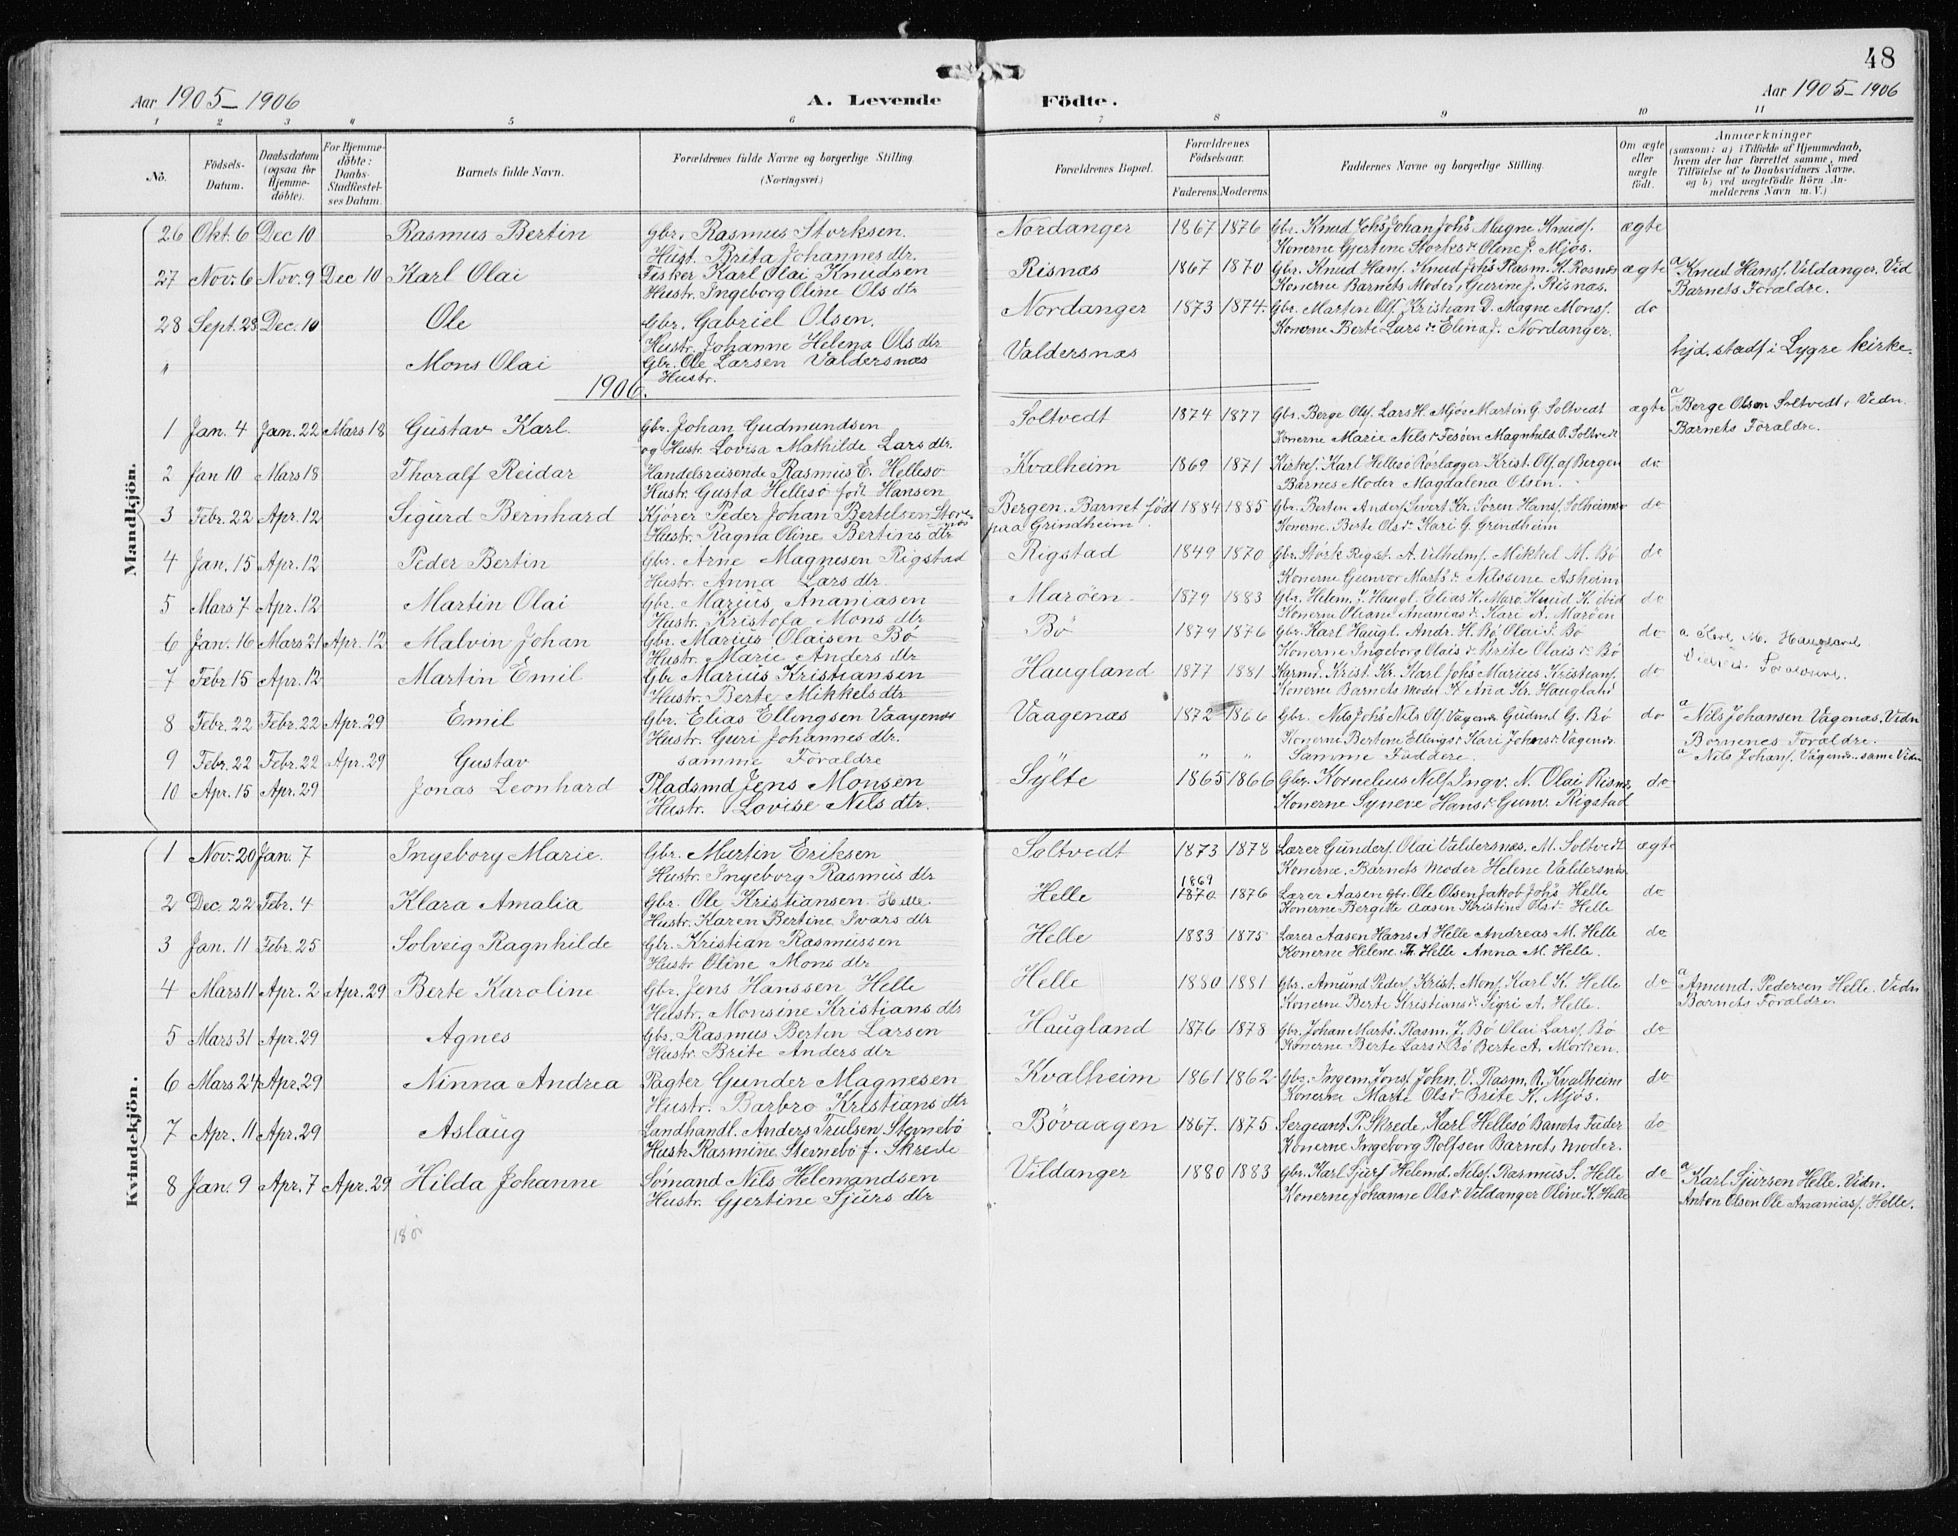 48
Aar 1905-1906
A. Levende Födte.
Aar 1905-1906
1 2 3 4 5 6 7 8 9 10 11
No. Födsels-Datum. Daabsdatum (ogsaa för Hjemmedöbte). For Hjemmedöbte: Daabs-Stadfæstelses Datum. Barnets fulde Navn. Forældrenes fulde Navne og borgerlige Stilling (Næringsvei) Forældrenes Bopæl. Forældrenes Födselsaar. Faderens. Moderens. Faddernes Navne og borgerlige Stilling. Om ægte eller uægte födt. Anmærkninger (saasom: a) i Tilfælde af Hjemmedaab, hvem der har forrettet samme, med Tilföielse af to Daabsvidners Navne, og b) ved uægtefödte Börn Anmelderens Navn m. V.)
Mandkjön.
26 Okt. 6 Dec 10 Rasmus Bertin Gbr. Rasmus Storksen. Nordanger 1867 1876 Gbr. Knud Johs Johan Johs Magne Knuds. ægte
Hust. Brita Johannes dtr. Konerne Gjertine Storks d. Oline J. Mjös.
27 Nov. 6 Nov. 9 Dec 10 Karl Olai Fisker Karl Olai Knudsen Risnæs 1867 1870 Gbr. Knud Hans. Knud Johs Rasm. K. Rosnæs ægte a Knud Hans. Vildanger. Vid
Hustr. Ingeborg Oline Ols dtr Konerne Barnets Moder, Gurine J. Risnæs. Barnets Forældre.
28 Sept. 23 Dec. 10 Ole Gbr. Gabriel Olsen. Nordanger 1873 1874 Gbr. Martin Ols. Kristian D. Magne Mons. do
Hustr. Johanne Helena Ols dtr Konerne Berte Lars d. Elina J. Nordanger.
" Mons Olai Gbr. Ole Larsen Valdersnæs Valdersnæs hjd. stadf i Lygre kirke.
Hustr.
1906.
1 Jan. 4 Jan. 22 Mars 18 Gustav Karl Gbr. Johan Gudmundsen Soltvedt 1874 1877 Gbr. Berge Ols. Lars H. Mjös Martin G. Soltvedt ægte a Berge Olsen Soltvedt. Vidn.
og Hustr. Lovisa Mathilde Lars dtr. Konerne Marie Nils d. Fesöen Magnhild O. Soltvedt Barnets Forældre.
2 Jan 10 Mars 18 Thoralf Reidar Handelsreisende Rasmus E. Hellesö Kvalheim 1869 1871 Kirkes. Karl Hellesö Rörlægger Krist. Ols. af Bergen do
Hustr. Gusta Hellesö födt Hansen Barnets Moder Magdalena Olsen.
3 Febr. 22 Apr. 12 Sigurd Bernhard Kjörer Peder Johan Bertelsen Bergen. Barnet födt 1884 1885 Gbr. Berten Anders. Sivert Kr. Sören Hans. Solheimsv do
Hustr. Ragna Oline Bertins dtr paa Grindheim. Konerne. Berte Ols d. Kari G. Grindheim
4 Jan. 15 Apr. 12 Peder Bertin Gbr. Arne Magnesen Rigstad Rigstad 1849 1870 Gbr. Störk Rigst. A. Vilhelms. Mikkel M. Bö do
Hustr. Anna Lars dtr. Konerne Gunvor Marts d. Nilsine Asheim
5 Mars 7 Apr. 12 Martin Olai Gbr. Marius Ananiasen Maröen. 1879 1883 Gbr. Helem. J. Haugl. Elias K. Marö Knud K. ibid do
Hustr. Kristofa Mons dtr Konerne Oliane Ananias d. Kari A. Maröen
6 Jan. 16 Mars 21 Apr. 12 Malvin Johan Gbr. Marius Olaisen Bö Bö 1879 1876 Gbr. Karl Haugl. Andr. H. Bö. Olai S. Bö do a M. Haugland
Hustr. Marie Anders dtr Konerne Ingeborg Olais d. Brite Olais d. Bö Forældre.
7 Febr 15 Apr. 12 Martin Emil Gbr Marius Kristiansen Haugland 1877 1881 Krist. Kr. Karl Johs Marius Kristians. do
Hustr. Berte Mikkels dtr Konerne Barnets Moder K. Ana Kr. Haugland
8 Febr. 22 Febr. 22 Apr. 29 Emil Gbr. Elias Ellingsen Vaagenæs Vaagenæs 1872 1866 Gbr. Nils Johs Nils Ols. Vagenæs Gudmd G. Bö do a Nils Johansen Vagenæs. Vidn
Hustr. Guri Johannes dtr. Konerne Bertine Ellings d. Kari Johns d. Vagenæs Börnenes Forældre.
9 Febr. 22 Febr. 22 Apr. 29 Gustav samme Forældre " " Samme Faddere. a Nils Johans. Vagenæs. same Vidn
10 Apr. 15 Apr. 29 Jonas Leonhard Pladsmd Jens Monsen Sylte 1865 1866 Gbr. Kornelius Nils. Ingv. N. Olai Risnæs, do
Hustr. Lovise Nils dtr. Konerne Syneve Hans d. Gunv. Rigstad
Kvindekjön.
1 Nov. 20 Jan. 7 Ingeborg Marie. Gbr. Martin Eriksen Soltvedt 1873 1878 Lærer Gunders. Olai Valdersnæs. M. Soltvedt ægte
Hustr. Ingeborg Rasmus dtr Konerne. Barnets Moder Helene Valdersnæs.
2 Dec. 22 Febr. 4 Klara Amalia Gbr. Ole Kristiansen. Helle Helle 1869 1870 1876 Lærer Aasen Gbr. Ole Olsen Jakob Johs Helle do
Hustr. Karen Bertine Ivars dtr Konerne Bergitte Aasen Kristine Ols d. Helle
3 Jan. 11 Febr. 25 Solveig Ragnhilde Gbr. Kristian Rasmussen Helle 1883 1875 Lærer Aasen Hans A Helle Andreas M. Helle do
Hustr Oline Mons dtr Konerne Helene Th. Helle Anna M. Helle.
4 Mars 11 Apr. 2 Apr. 29 Berte Karoline Gbr. Jens Hanssen Helle Helle 1880 1881 Gbr. Amund Peders. Krist. Mons. Karl K. Helle do a Amund Pedersen Helle. Vidn
Hustr. Monsine Kristians dtr Konerne Berte Kristians d. Sigri A. Helle. Barnets Forældre
5 Mars 31 Apr. 29 Agnes Gbr. Rasmus Berten Larsen Haugland 1876 1878 Gbr. Johan Marts. Rasm. J. Bö Olai Lars. Bö do
Hustr. Brite Anders dtr Konerne Berte Lars d. Bö Berte A. Morken.
6 Mars 24 Apr. 29 Ninna Andrea Pagter Gunder Magnesen Kvalheim 1861 1862 Gbr. Ingem. Jons. John. V. Rasm. R. Kvalheim do
Hustr. Barbro Kristians dtr Konerne Marte Ols d. Brite K. Mjös.
7 Apr. 11 Apr. 29 Aslaug Landhandl. Anders Trulsen Sternebö Bövaagen 1867. 1875 Sergeant P. Skrede, Karl Hellesö Barnets Fader do
Hustr Rasmine Sternebö f. Skrede Konerne Ingeborg Rolfsen Barnets Moder.
8 Jan. 9 Apr. 7 Apr. 29 Hilda Johanne Sömand Nils Helemandsen Vildanger 1880 1883 Gbr. Karl Sjurs. Helemd. Nils. Rasmus S. Helle do a Karl Sjursen Helle. Vidn.
Hustr. Gjertine Sjurs dtr Konerne Johanne Ols d. Vildanger Oline K. Helle Anton Olsen Ole Ananias. Helle.